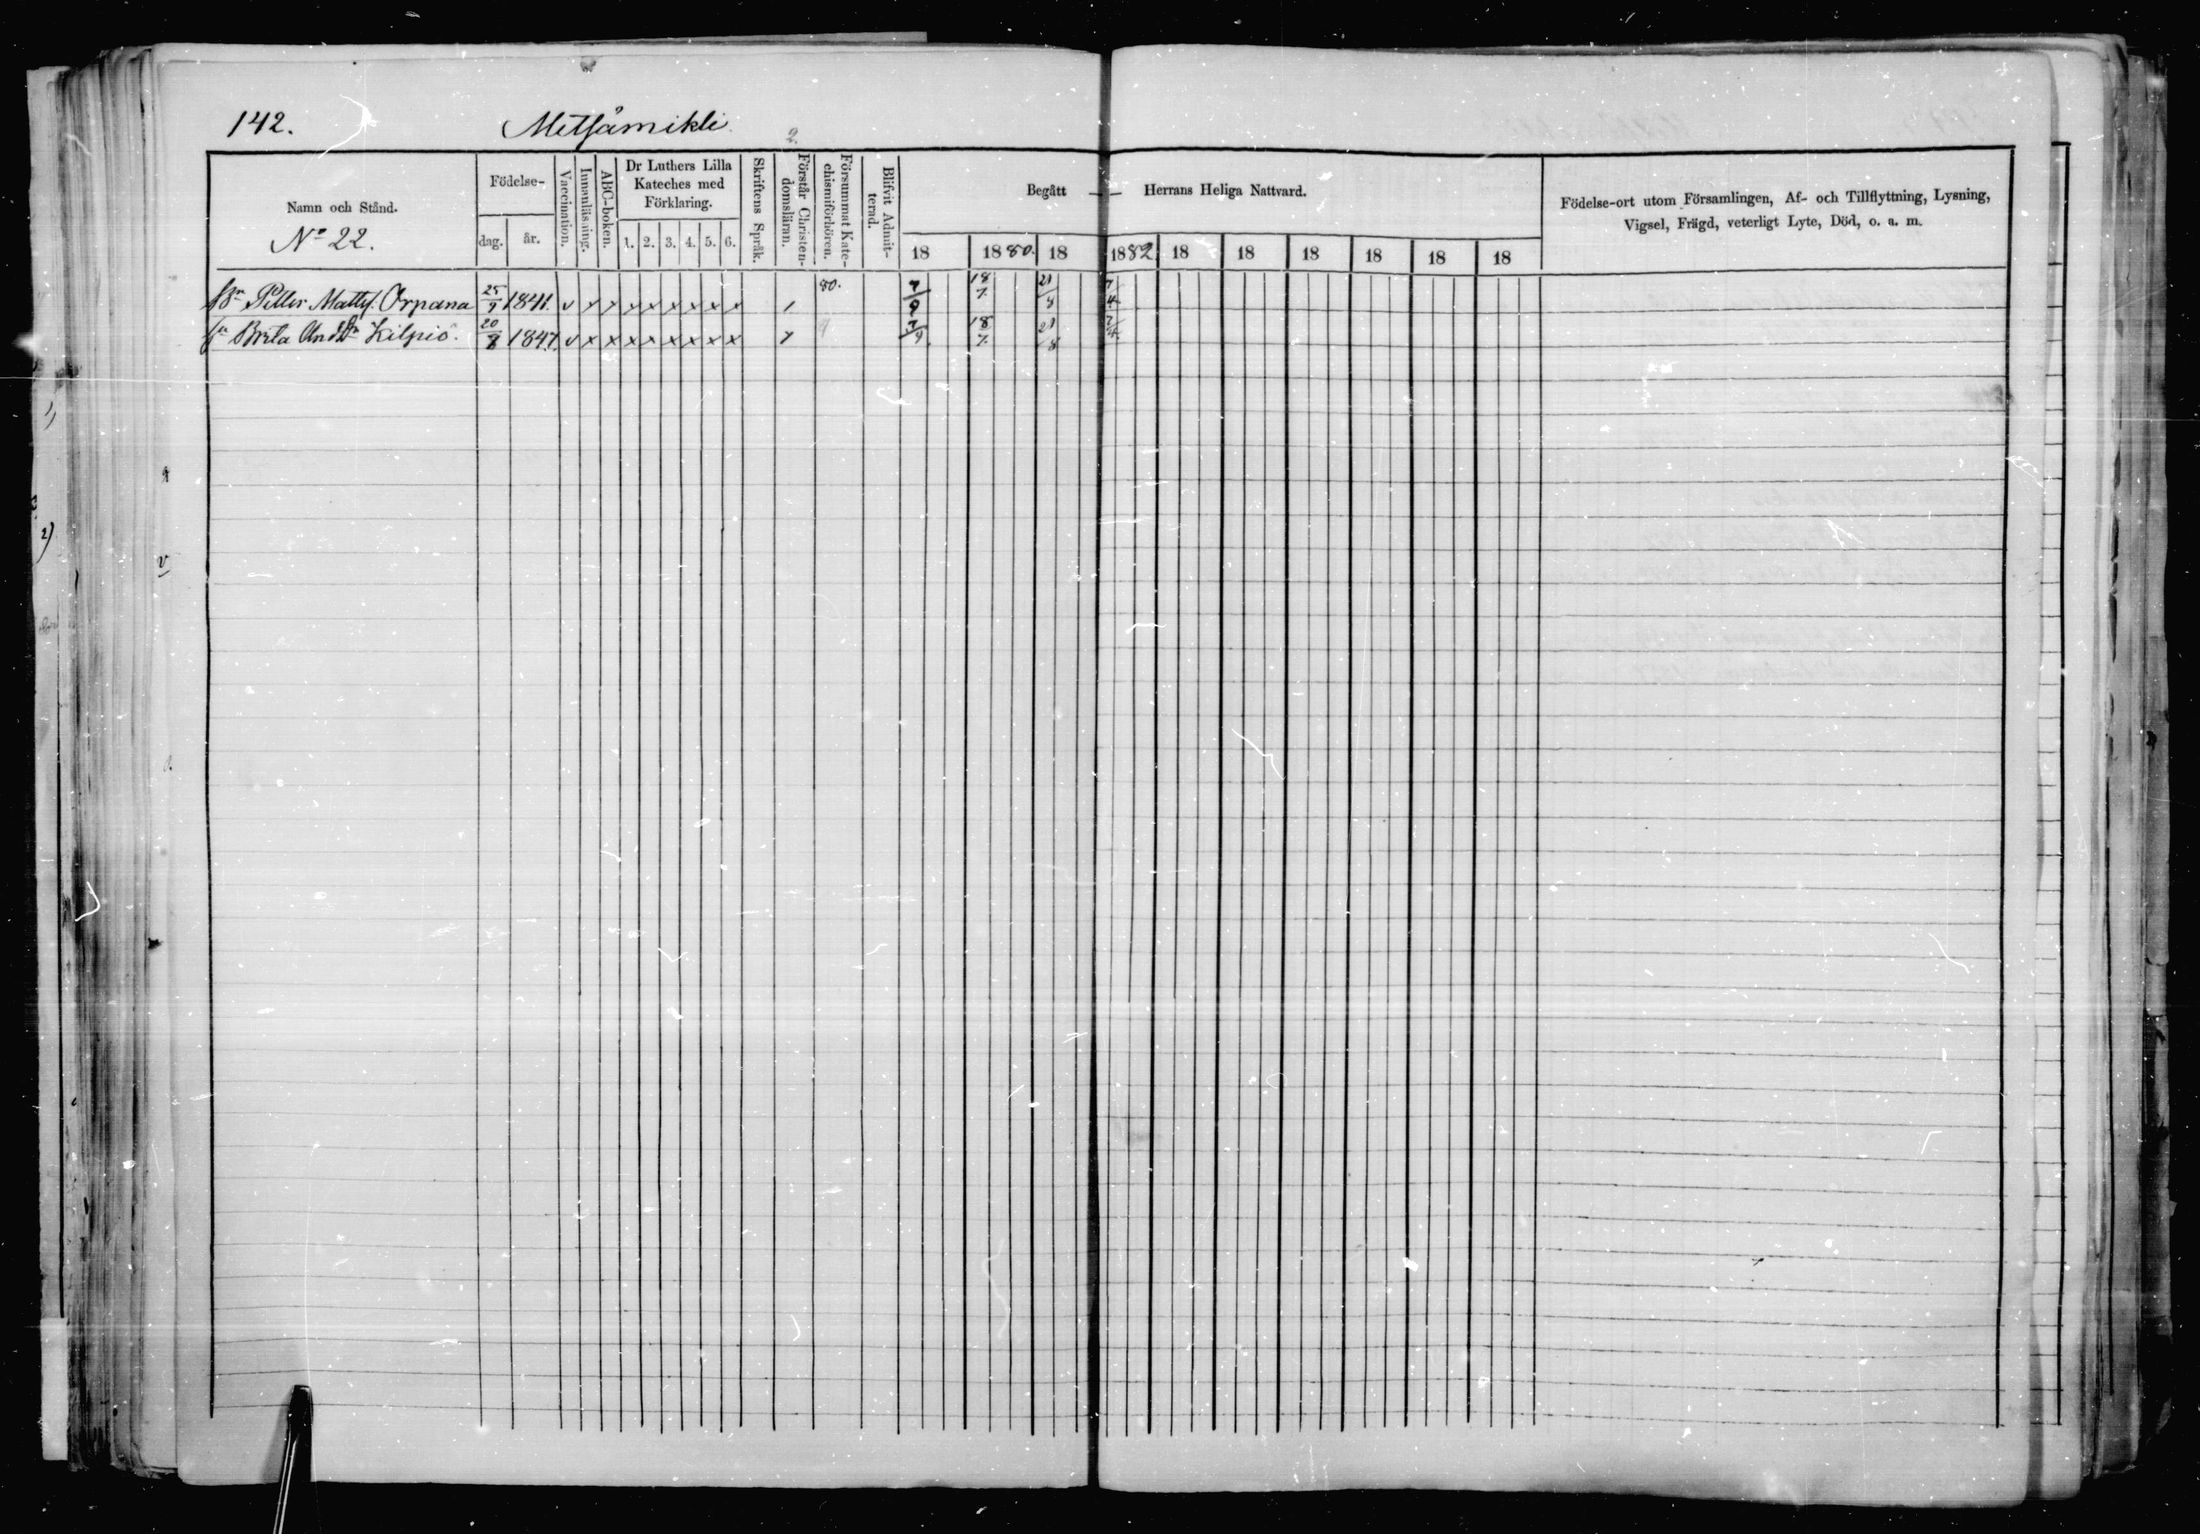 142. Metsämikli 2.
Namn och Stånd. Födelse- Vaccination. Innanläsning. ABC-boken. Dr Luthers Lilla Kateches med Förklaring. Skriftens Språk. Förstår Christendomsläran. Försummat Katechismiförhören. Blifvit Admitterad. Begått — Herrans Heliga Nattvard. Födelse-ort utom Församlingen, Af- och Tillflyttning, Lysning,
Vigsel, Frägd, veterligt Lyte, Död, o. a. m.
No 22. dag. år. 1. 2. 3. 4. 5. 6. 18 1880. 18 1882 18 18 18 18 18 18
Petter Matts. Orpana 25/9 1841. v x x x x x x x x 1 80. 7/9 18/7 21/8 7/4
Brita And. Dr Kilpiö. 20/8 1847. v x x x x x x x x 7/9. 18/7 21/8 7/4